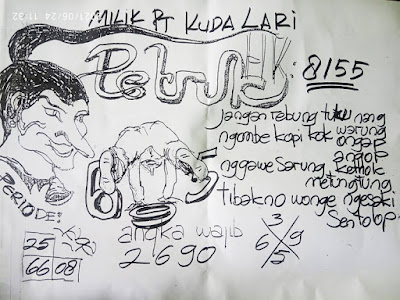 21/06/24 11:32
MILIK PT KUDA LARI
Petruk HK: 8155
jangan rebung tuku nang warung
ngombe kopi kok ongap angop
nggawe sarung kathok melungtung
tibakno wonge ngesaki Sentolop
PERIODE:
25
66 08
angka wajib
2690
3
6 9
5